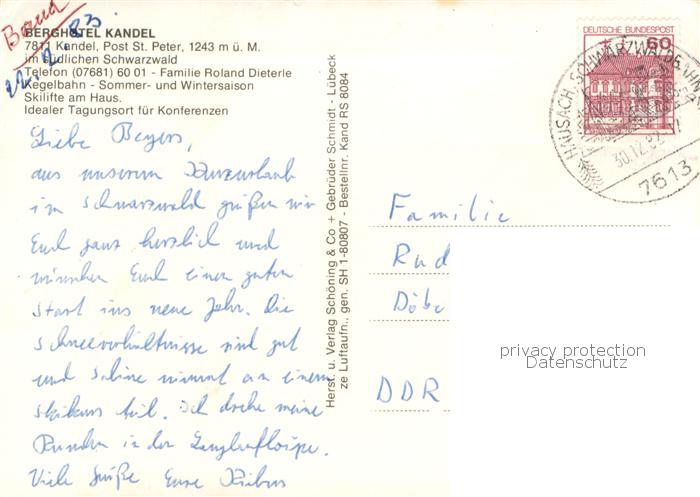 BERGHOTEL KANDEL
7811 Kandel, Post St. Peter, 1243 m ü. M.
im südlichen Schwarzwald
Telefon (07681) 60 01 - Familie Roland Dieterle
Kegelbahn - Sommer- und Wintersaison
Skilifte am Haus.
Idealer Tagungsort für Konferenzen
Liebe Beyers,
aus unserem Kurzurlaub
im Schwarzwald grüßen wir
Euch ganz herzlich und
wünschen Euch einen guten
Start ins neue Jahr. Die
Schneeverhältnisse sind gut
und Sabine nimmt an einem
Skikurs teil. Ich drehe meine
Runden in der Langlaufloipe.
Viele Grüße Eure
Herst. u. Verlag Schöning & Co + Gebrüder Schmidt - Lübeck
ze Luftaufn., gen. SH 1-80807 - Bestellnr. Kand RS 8084
DEUTSCHE BUNDESPOST
60
HAUSACH, SCHWARZWALDEINGANG
30.12.82
7613
Familie
Rud
Döbe
DDR
privacy protection
Datenschutz